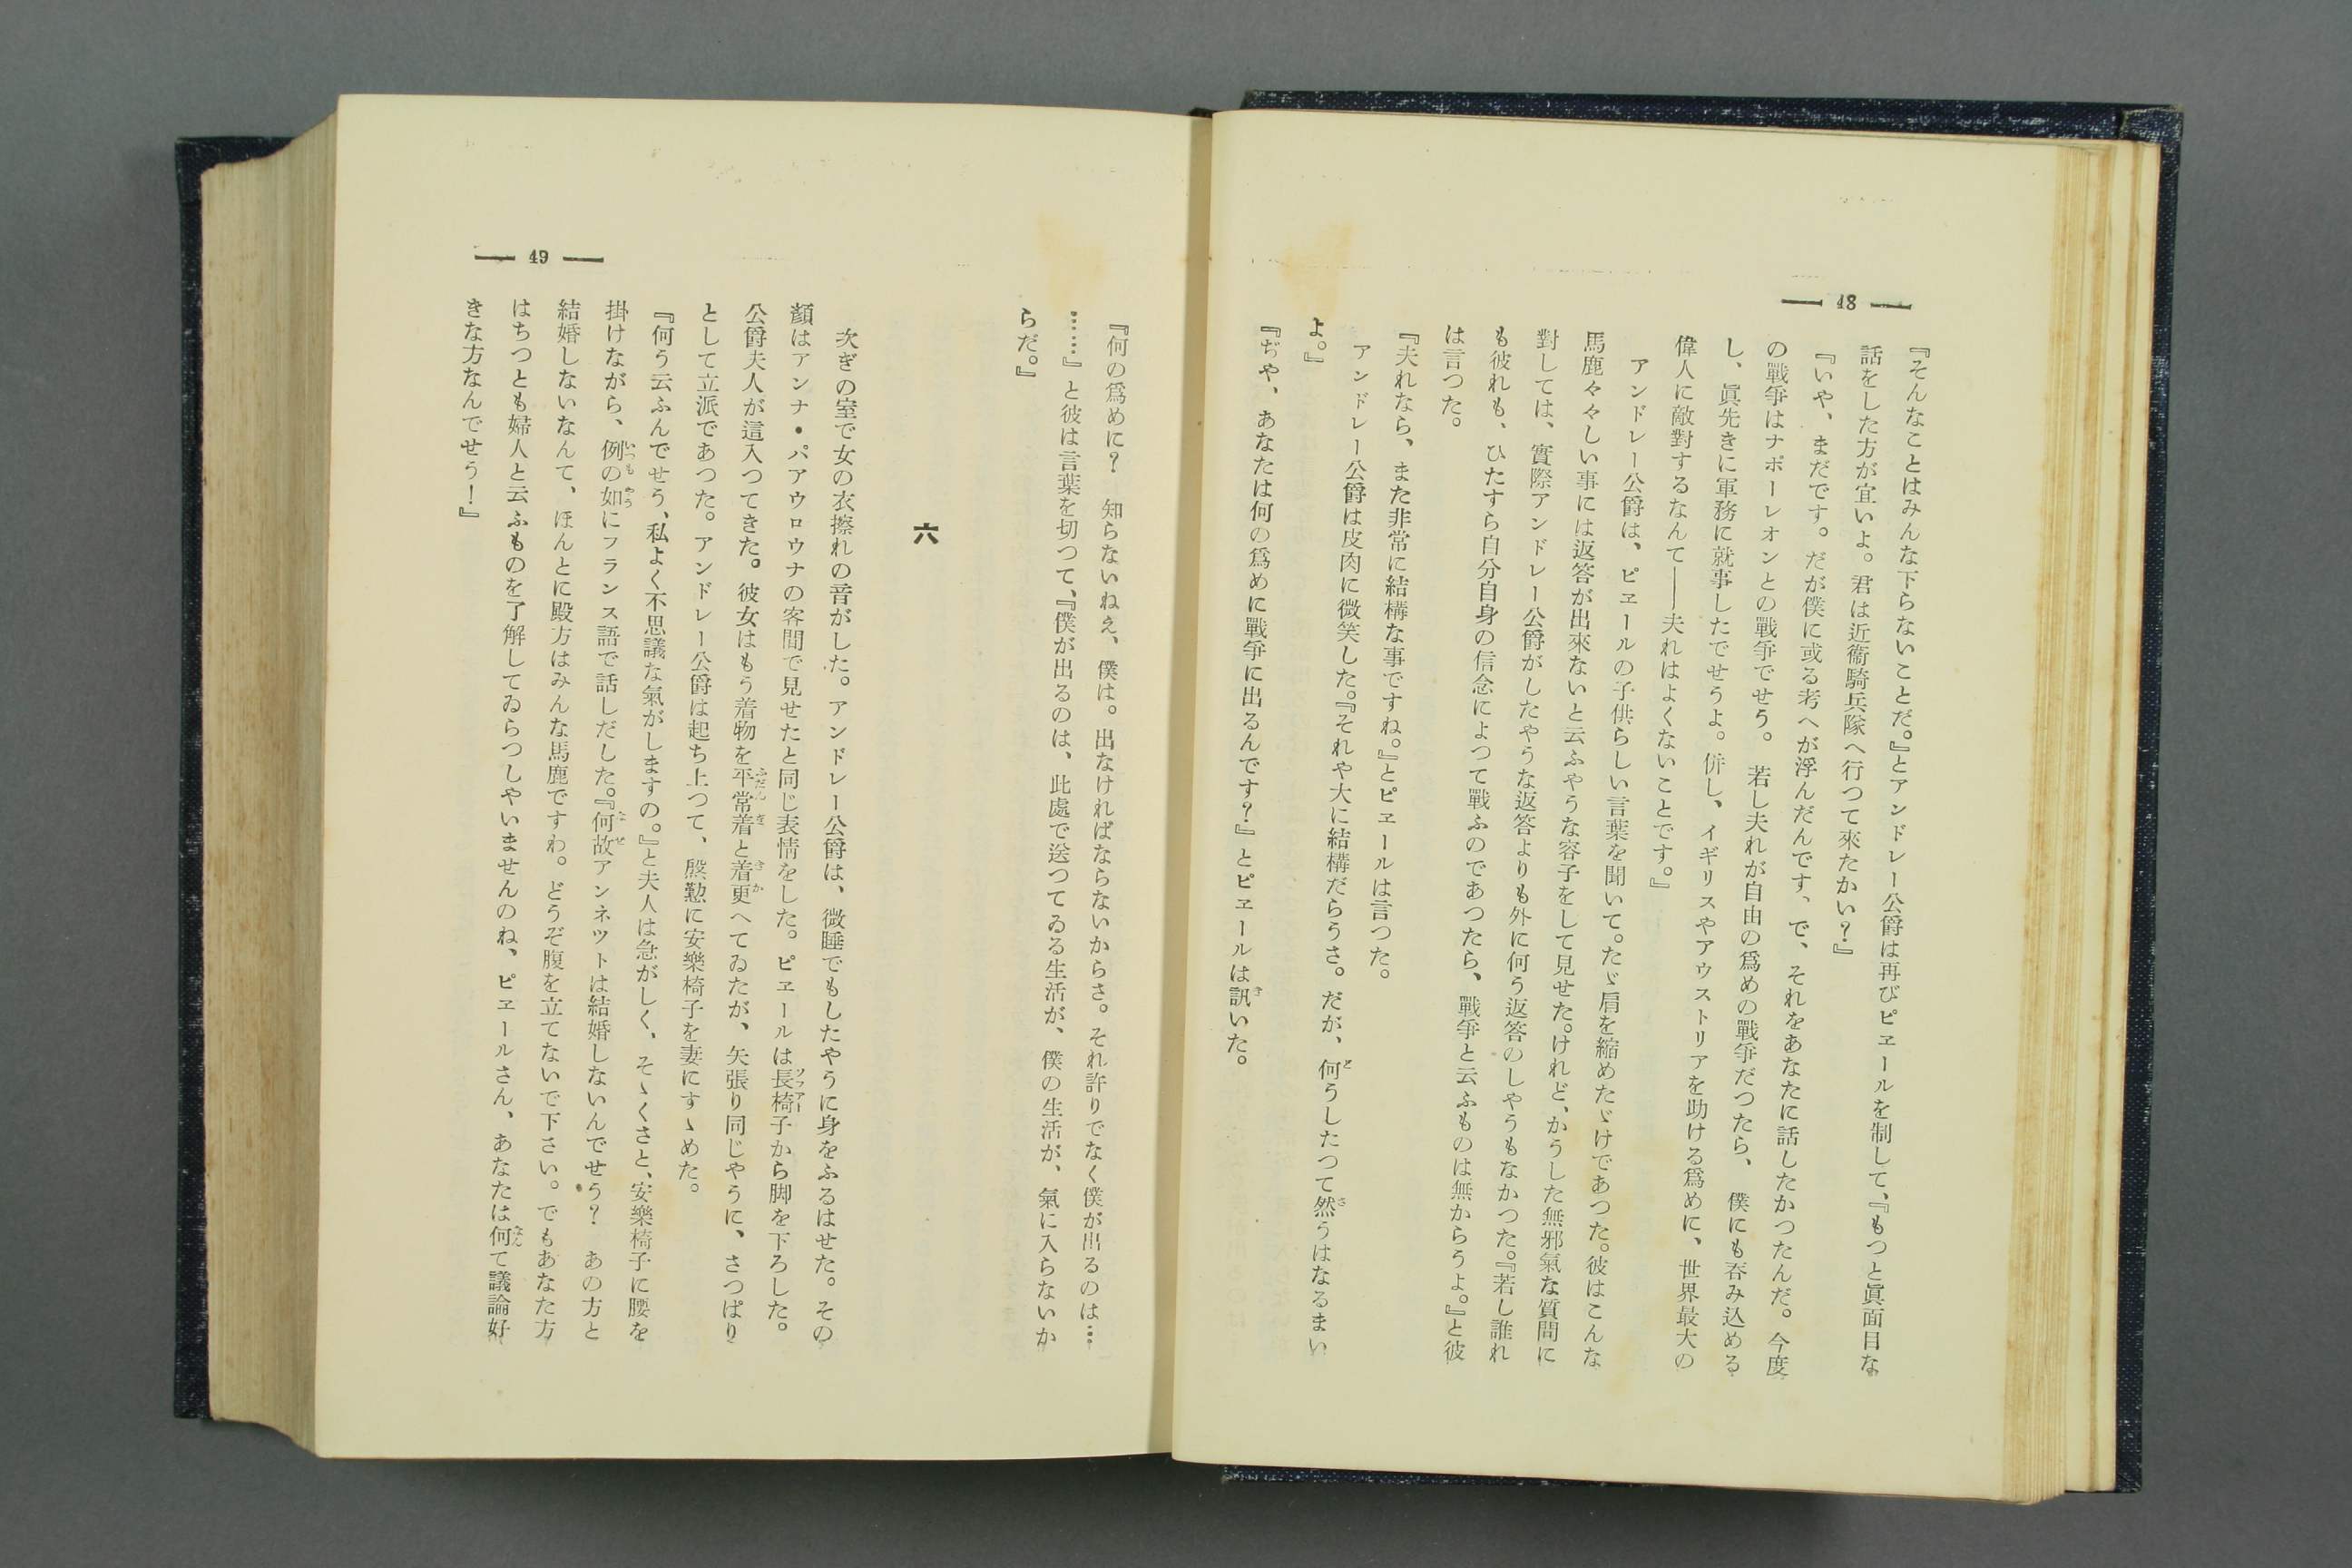 ― 48 ―
『そんなことはみんな下らないことだ。』とアンドレー公爵は再びピエールを制して、『もつと眞面目な
話をした方が宜いよ。君は近衞騎兵隊へ行つて來たかい？』
『いや、まだです。だが僕に或る考へが浮んだんです、で、それをあなたに話したかつたんだ。今度
の戰爭はナポーレオンとの戰爭でせう。若し夫れが自由の爲めの戰爭だつたら、僕にも呑み込める
し、眞先きに軍務に就事したでせうよ。併し、イギリスやアウストリアを助ける爲めに、世界最大の
偉人に敵對するなんて――夫れはよくないことです。』
アンドレー公爵は、ピエールの子供らしい言葉を聞いて。たゞ肩を縮めたゞけであつた。彼はこんな
馬鹿々々しい事には返答が出來ないと云ふやうな容子をして見せた。けれど、かうした無邪氣な質問に
對しては、實際アンドレー公爵がしたやうな返答よりも外に何う返答のしやうもなかつた。『若し誰れ
も彼れも、ひたすら自分自身の信念によつて戰ふのであつたら、戰爭と云ふものは無からうよ。』と彼
は言つた。
『夫れなら、また非常に結構な事ですね。』とピエールは言つた。
アンドレー公爵は皮肉に微笑した。『それや大に結構だらうさ。だが、何うしたつて然うはなるまい
よ。』
『ぢや、あなたは何の爲めに戰爭に出るんです？』とピエールは訊いた。
― 49 ―
『何の爲めに？　知らないねえ、僕は。出なければならないからさ。それ許りでなく僕が出るのは…
……』と彼は言葉を切つて、『僕が出るのは、此處で送つてゐる生活が、僕の生活が、氣に入らないか
らだ。』
六
次ぎの室で女の衣擦れの音がした。アンドレー公爵は、微睡でもしたやうに身をふるはせた。その
顏はアンナ・パアウロウナの客間で見せたと同じ表情をした。ピエールは長椅子から脚を下ろした。
公爵夫人が這入つてきた。彼女はもう着物を平常着と着更へてゐたが、矢張り同じやうに、さつぱり
として立派であつた。アンドレー公爵は起ち上つて、慇懃に安樂椅子を妻にすゝめた。
『何う云ふんでせう、私よく不思議な氣がしますの。』と夫人は急がしく、そゝくさと、安樂椅子に腰を
掛けながら、例の如にフランス語で話しだした。『何故アンネツトは結婚しないんでせう？　あの方と
結婚しないなんて、ほんとに殿方はみんな馬鹿ですわ。どうぞ腹を立てないで下さい。でもあなた方
はちつとも婦人と云ふものを了解してゐらつしやいませんのね、ピエールさん、あなたは何て議論好
きな方なんでせう！』